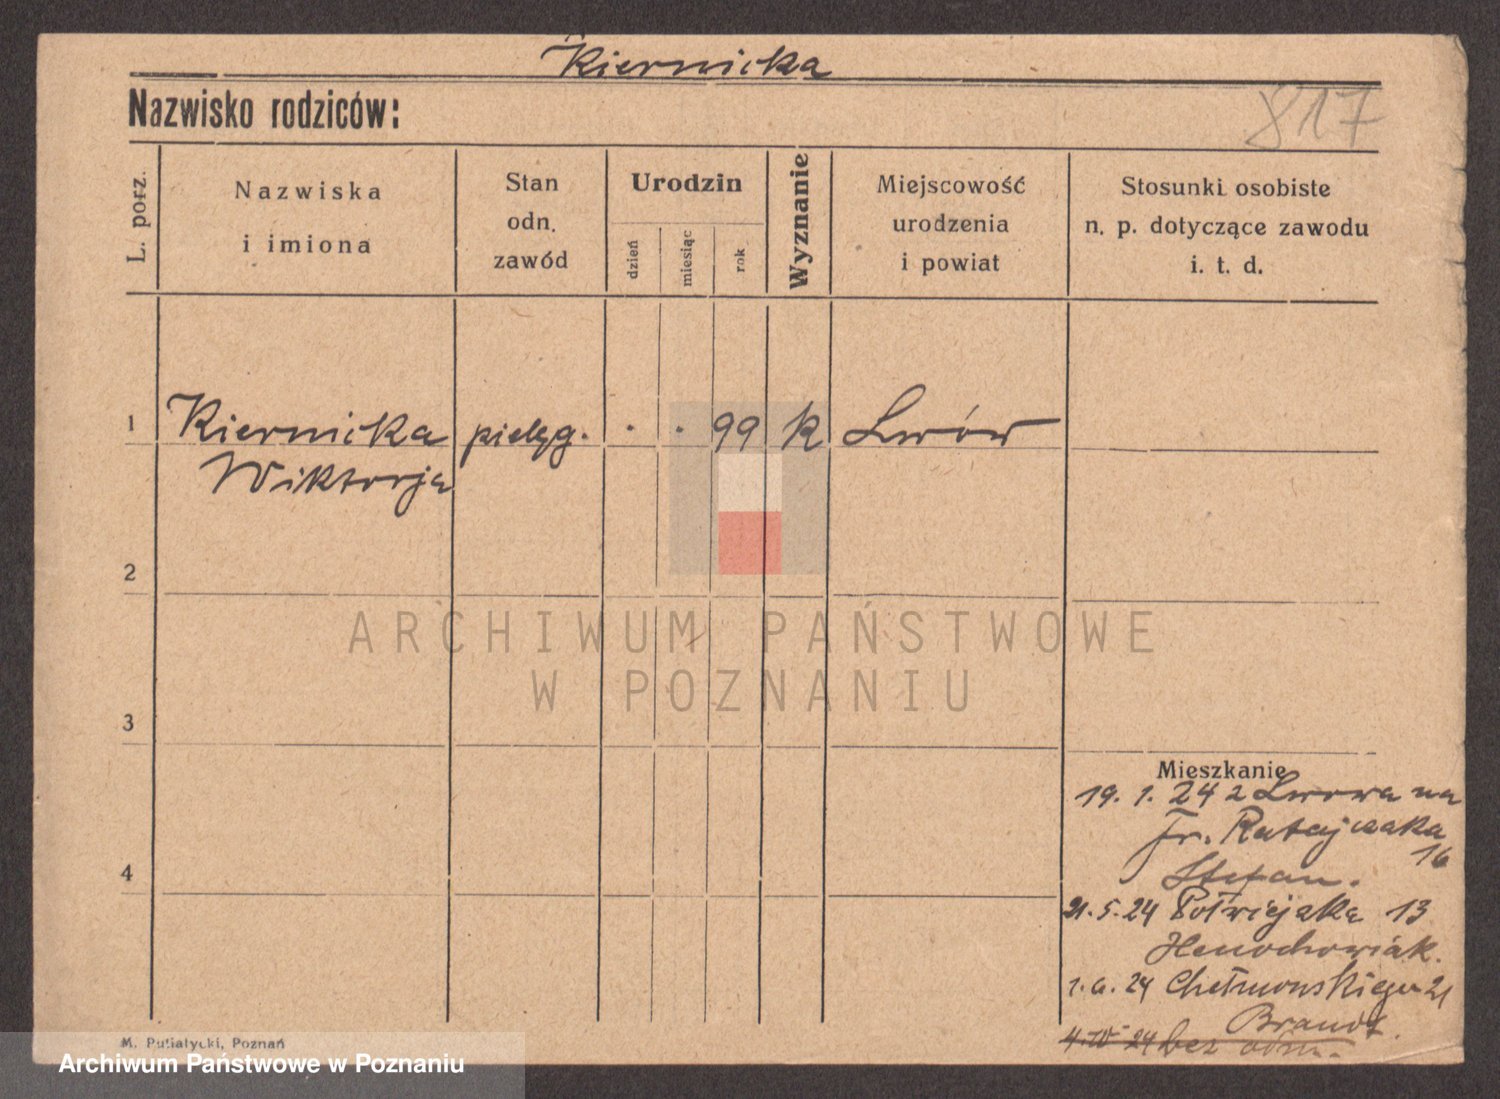 Kiernicka
Nazwisko rodziców:
817
L. porz.
Nazwiska
i imiona
Stan
odn.
zawód
Urodzin
dzień
miesiąc
rok
Wyznanie
Miejscowość
urodzenia
i powiat
Stosunki osobiste
n. p. dotyczące zawodu
i. t. d.
1 Kiernicka pielęg. . . 99 k Lwów
Wiktorja
2
ARCHIWUM PAŃSTWOWE
W POZNANIU
3
Mieszkanie
19. 1. 24 z Lwowa na
Fr. Ratajczaka
16
Stefan.
21. 5. 24 Półwiejska 13
Henochowiak.
24 Chełmońskiego 21
Brandt.
24 bez odm.
M. Putiatycki, Poznań
Archiwum Państwowe w Poznaniu